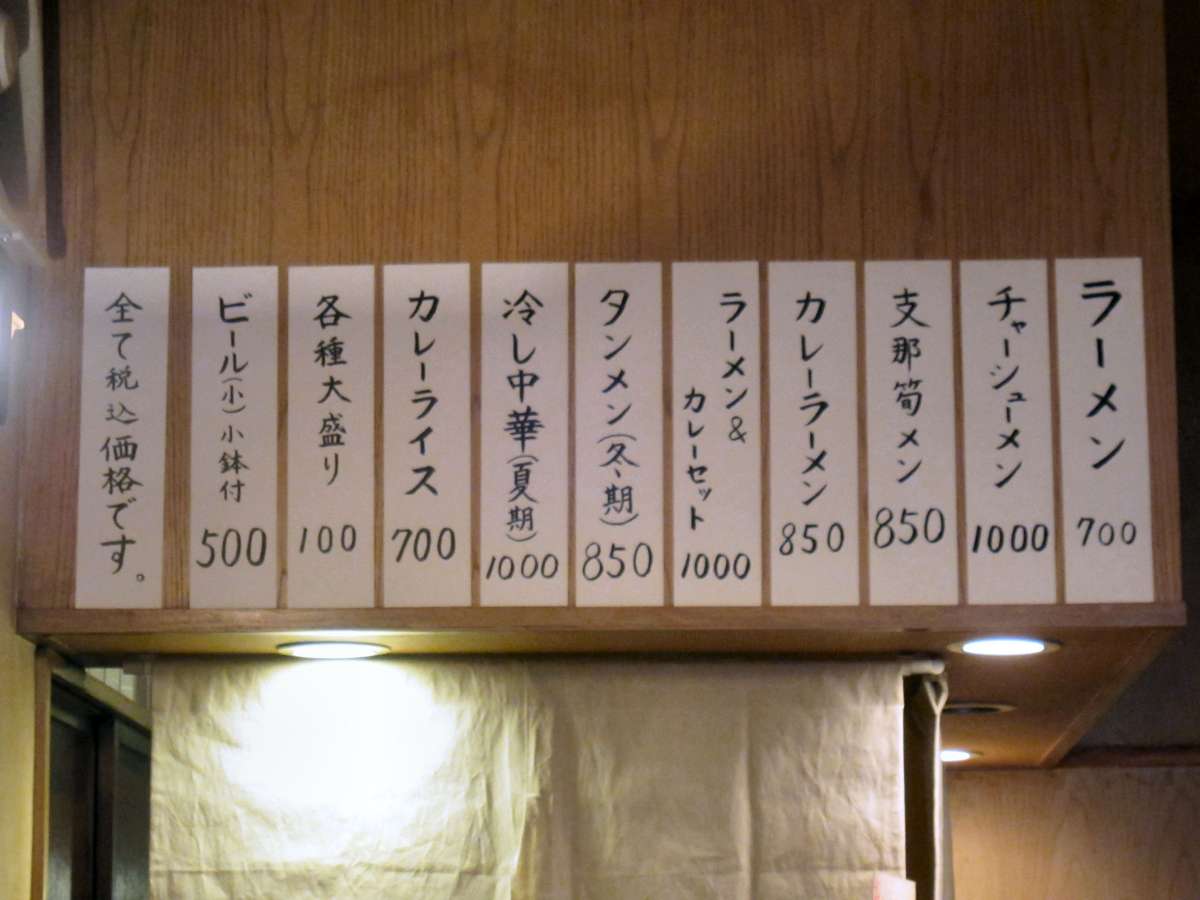 ラーメン
700
チャーシューメン
1000
支那筍メン
850
カレーラーメン
850
ラーメン&
カレーセット
1000
タンメン(冬期)
850
冷し中華(夏期)
1000
カレーライス
700
各種大盛り
100
ビール(小)小鉢付
500
全て税込価格です。